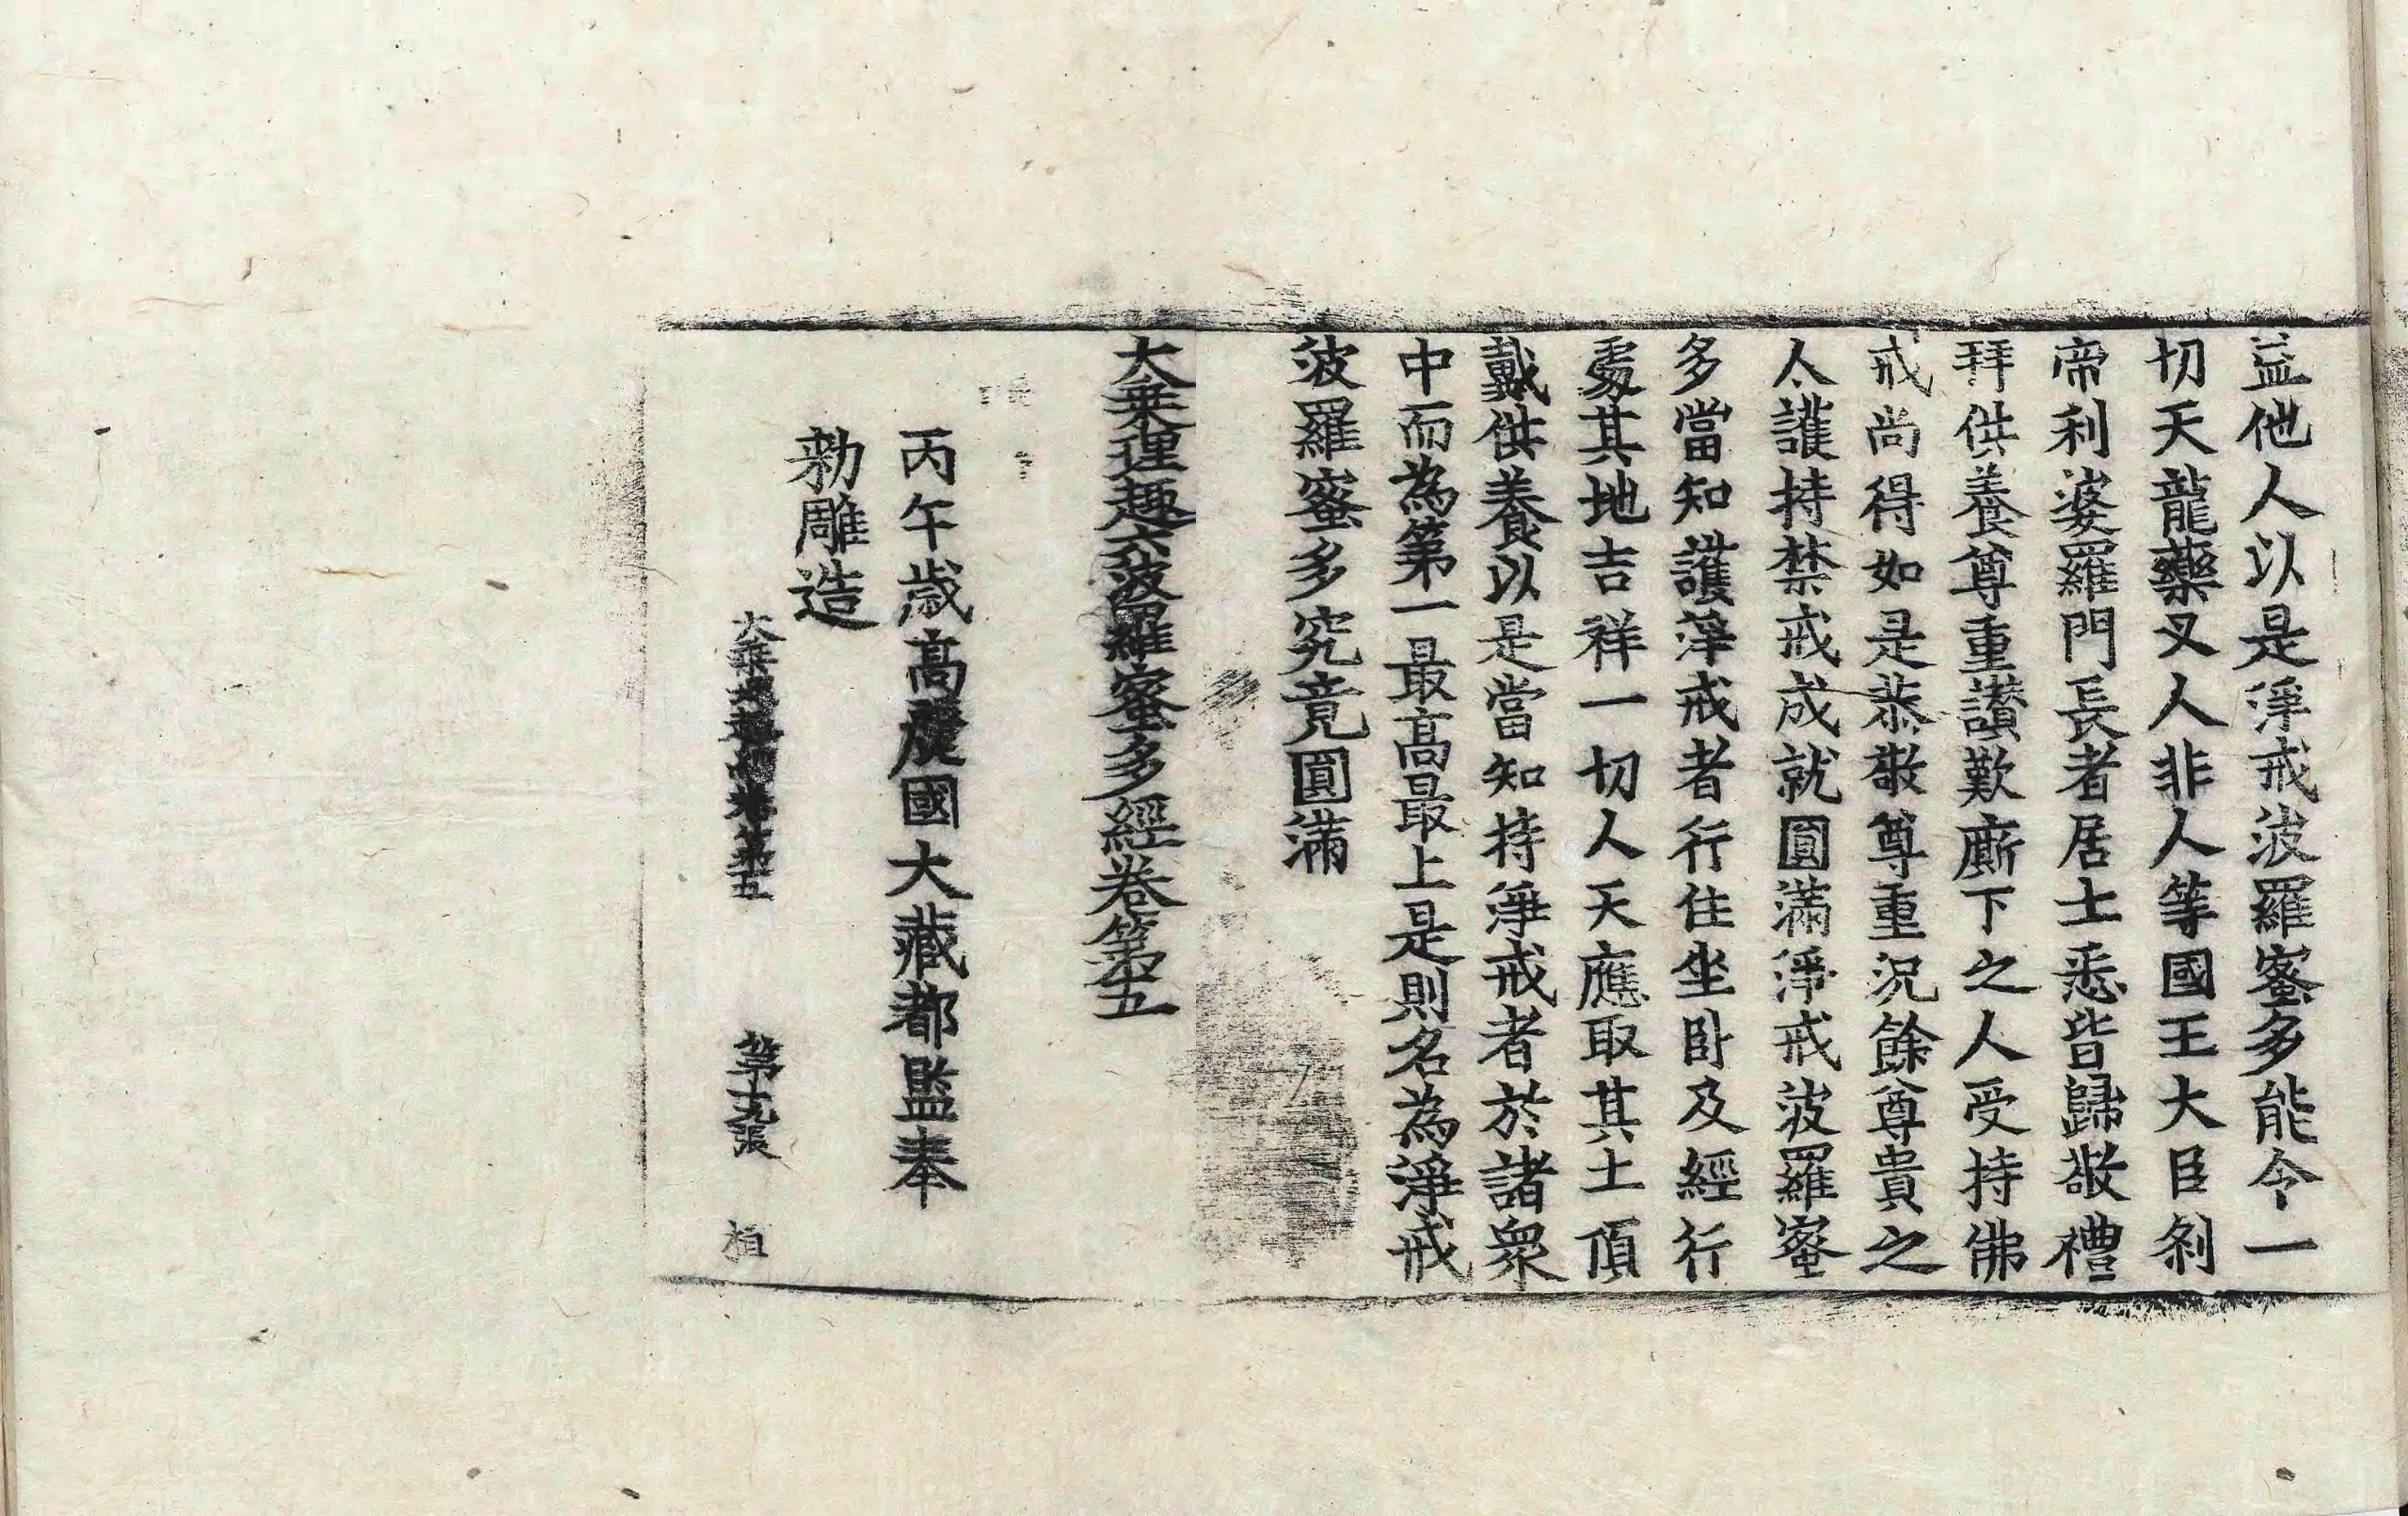 益他人以是淨戒波羅蜜多能令一
切天龍藥叉人非人等國王大臣刹
帝利婆羅門長者居士悉皆歸敬禮
拜供養尊重讚歎廝下之人受持佛
戒尚得如是恭敬尊重況餘尊貴之
人護持禁戒成就圓滿淨戒波羅蜜
多當知護淨戒者行住坐卧及經行
處其地吉祥一切人天應取其土頂
戴供養以是當知持淨戒者於諸衆
中而為第一最高最上是則名為淨戒
波羅蜜多究竟圓滿
大乗理趣六波羅蜜多經卷第五
丙午歲高麗國大藏都監奉
勑雕造
大乗理趣經卷第五 第十九張 植